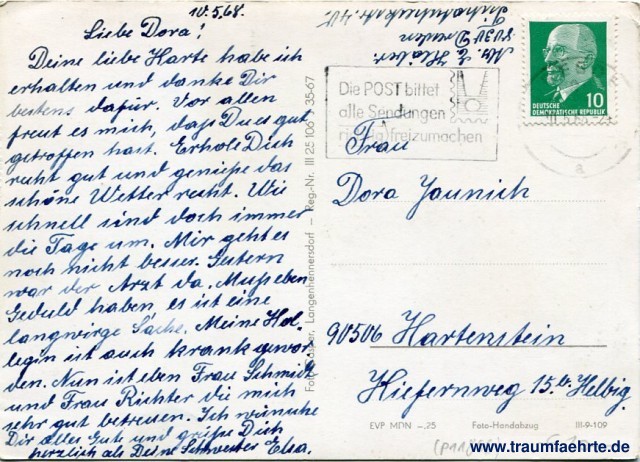 10.5.68.
Liebe Dora!
Deine liebe Karte habe ich
erhalten und danke Dir
bestens dafür. Vor allen
freut es mich, daß Du es gut
getroffen hast. Erhole Dich
recht gut und genieße das
schöne Wetter recht. Wie
schnell sind doch immer
die Tage um. Mir geht es
noch nicht besser. Gestern
war der Arzt da. Muß eben
Geduld haben, es ist eine
langwirge Sache. Meine Kol-
legin ist auch krank gewor
den. Nun ist eben Frau Schmidt
und Frau Richter die mich
sehr gut betreuen. Ich wünsche
Dir alles Gute und grüße Dich
herzlich als Deine Schwester Elsa.
Foto-, Langenhennersdorf – Reg.-Nr. III 25 106 35-67
8030 Dresden
Die POST bittet
alle Sendungen
richtig freizumachen
DEUTSCHE
DEMOKRATISCHE REPUBLIK
10
Frau
Dora Jaunich
90506 Hartenstein
Kiefernweg 15 b. Helbig
EVP MDN –,25 Foto-Handabzug III-9-109
www.traumfaehrte.de